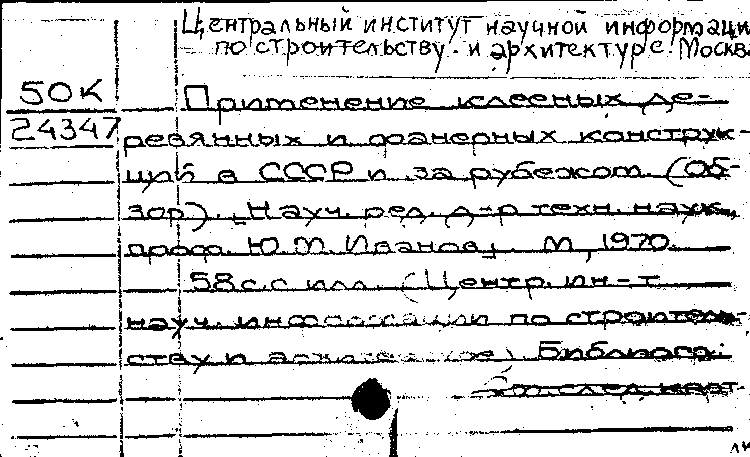 Центральный институт научной информаци
по строительству и архитектуре. Москва
50К
24347
Применение клееных де-
ревянных и фанерных конструк-
ций в СССР и за рубежом. (Об-
зор). Науч. ред. д-р техн. наук,
проф. Ю.М. Иванов, М, 1970.
58 с. с илл. (Центр. ин-т
науч. информации по строитель-
ству и архитектуре) Библиогр:
См. след. карт.